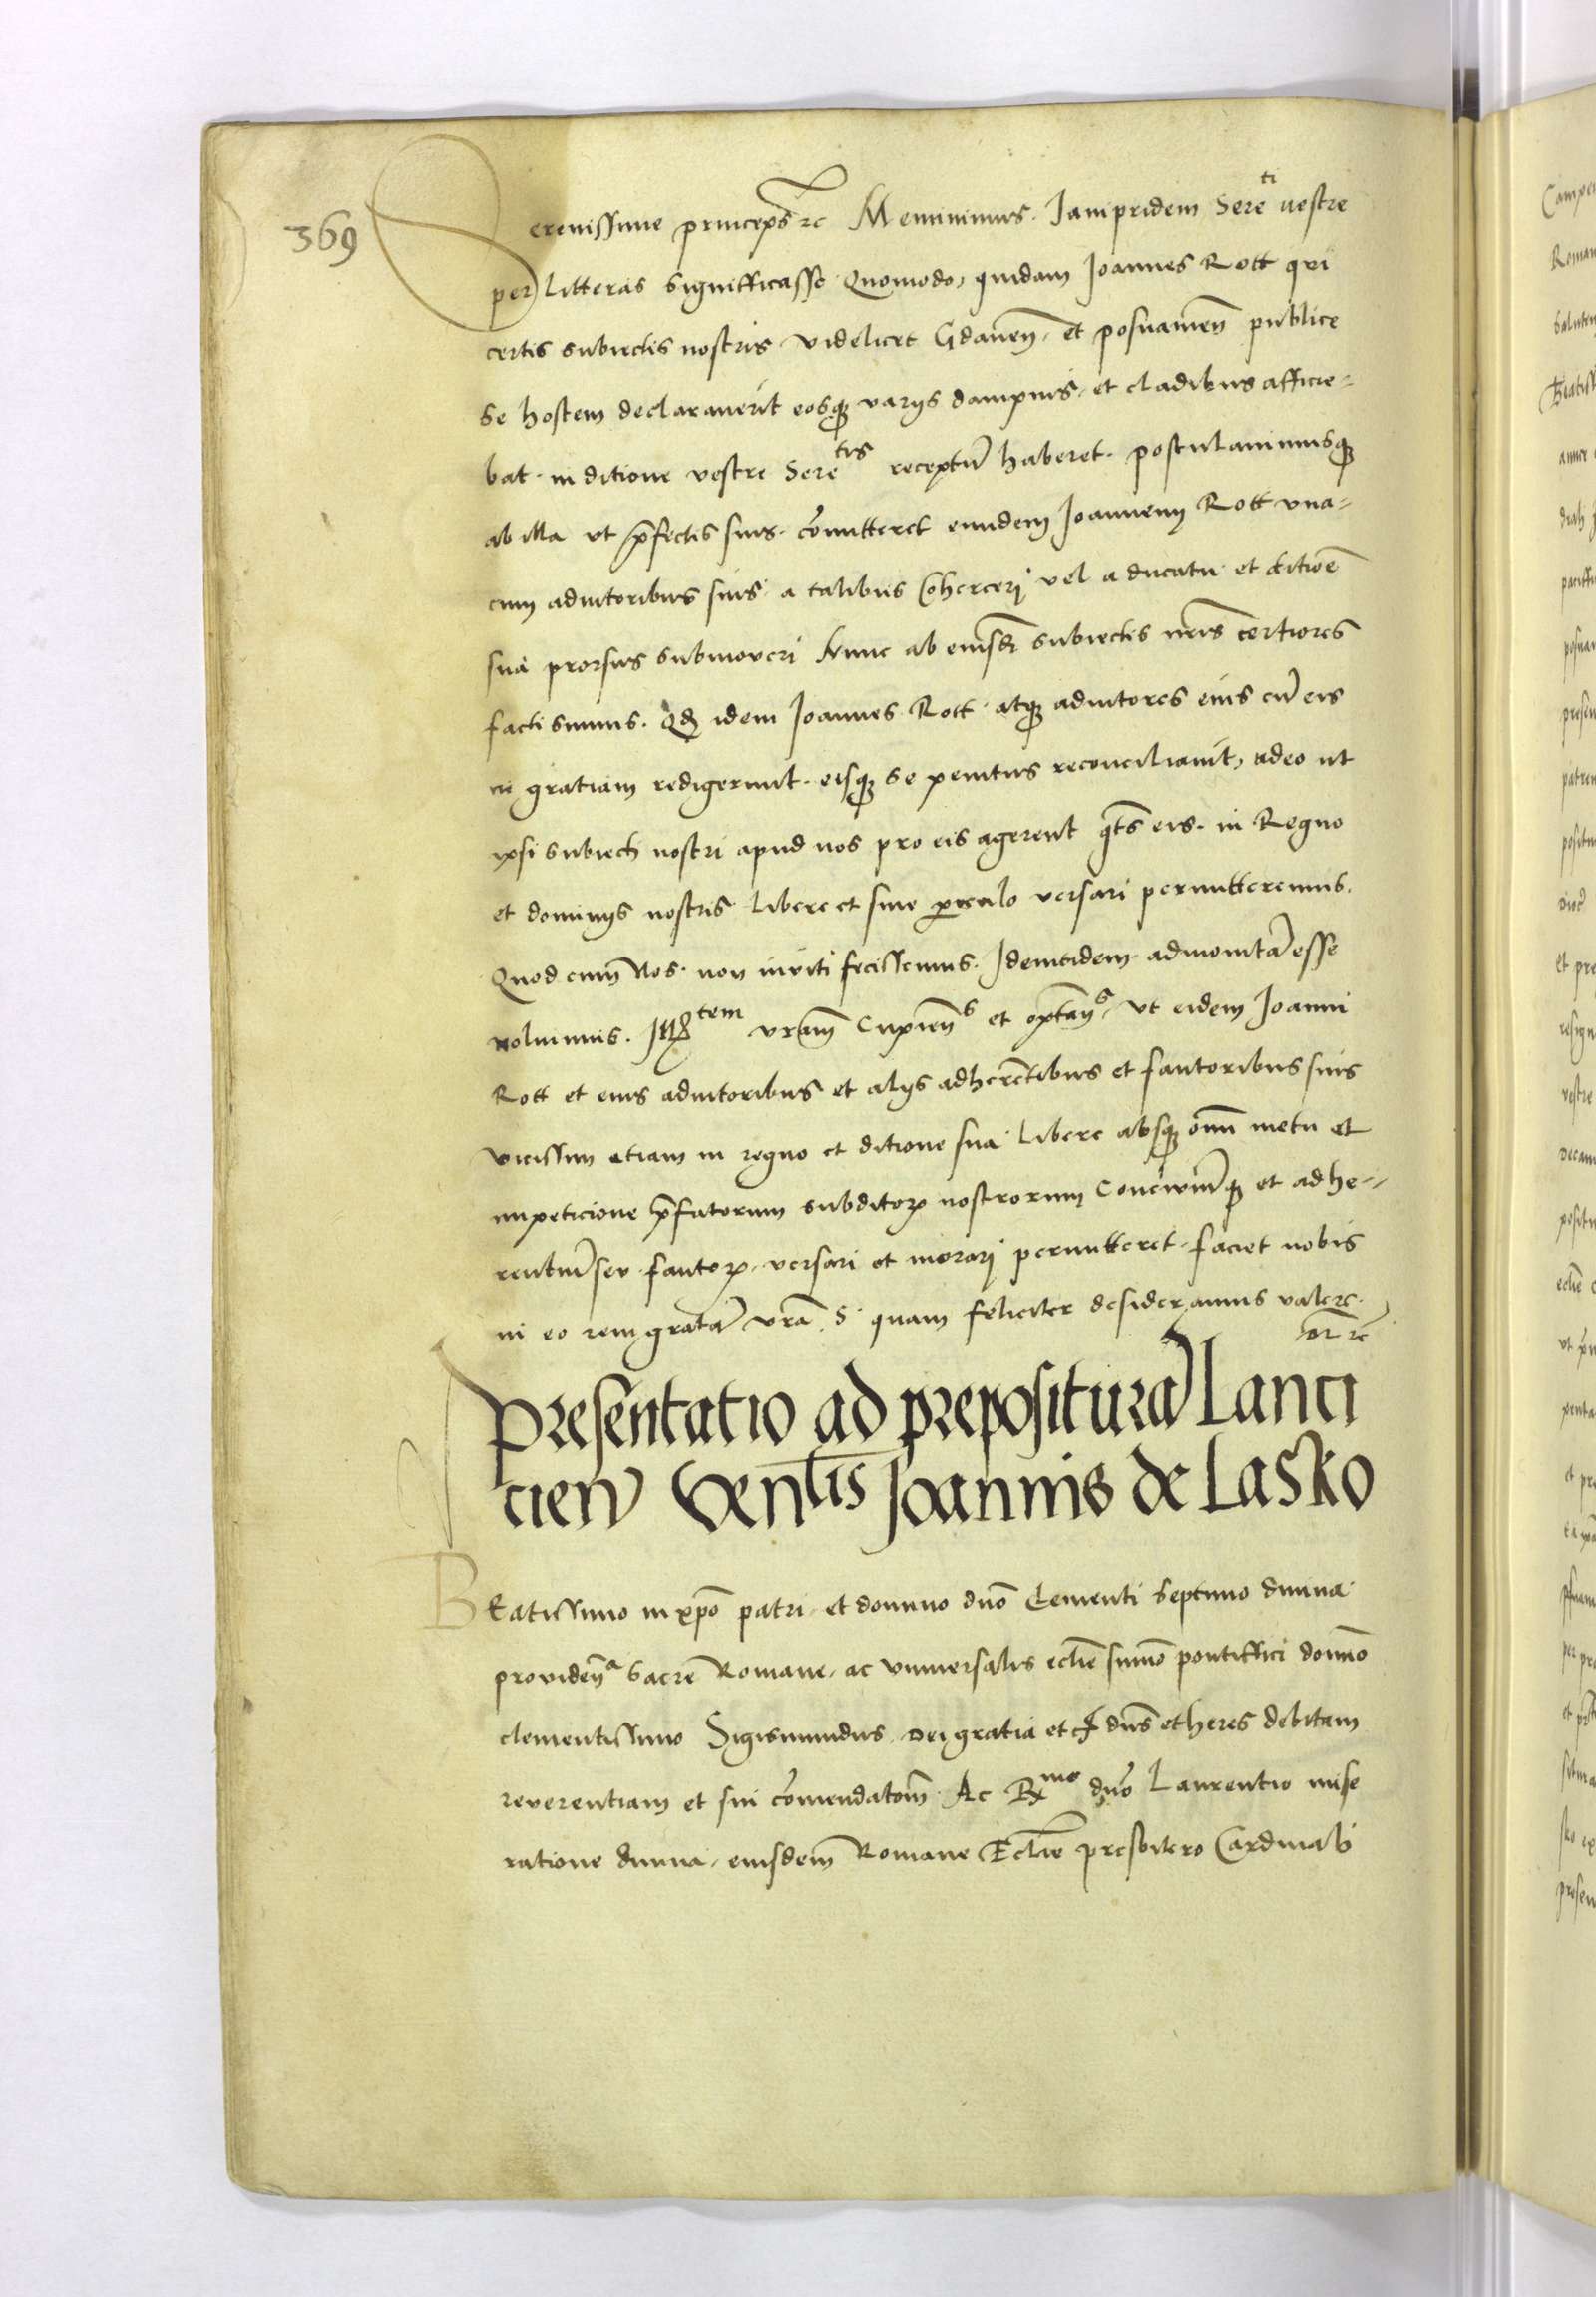 369
Serenissime princeps rc Meminimus. Jampridem Sere^ti vestre
per litteras significasse Quomodo, quidam Joannes Rott qui
certis subiectis nostris videlicet Gdaneñ. et posnanieñ publice
se hostem declaraverit eosq varijs dampnis. et cladibus afficie=
bat. in ditione vestre Sere^tis receptū haberet. postulavimusq
ab illa ut p̄fectis suis. cōmitteret eundem Joannem Rott una=
cum adiutoribus suis. a talibus Coherceri vel a ducatu et ditiōe
sua prorsus submoveri Nunc ab eiusdē subiectis nr̄is certiores
facti sumus. Qd idem Joannes Rott. atq adiutores eius cū eis
in gratiam redigerunt. eisq se penitus reconciliavit, adeo ut
ipsi subiecti nostri apud nos pro eis agerent q̄ts eis. in Regno
et dominijs nostris libere et sine periculo versari permitteremus.
Quod cum Nos. non inviti fecissemus. Identidem admonitā esse
volumus. Mtem vram̄ cupieñs et optañs, ut eidem Joanni
Rott et eius adiutoribus et alijs adherētibus et fautoribus suis
vicissim etiam in regno et ditione sua libere absq omni metu et
impeticione p̄fatorum subditoꝝ nostrorum Conciviūq et adhe=
rentiū seu fautoꝝ. versari et morari permitteret. faciet nobis
in eo rem gratā vrā. S. quam feliciter desideramus valere.
Presentatio ad prepositurā Lanci
cieñ Ven^tis Joannis de Lasko
Beatissimo in xp̄o patri. et domino dn̄o Clementi Septimo divina
provideñ^a Sacre Romane. ac universalis ecl̄ie sum̄o pontiffici domn̄o
clementissimo Sigismundus. Dei gratia etc̄ dn̄s et heres debitam
reverentiam et sui cōmendatom̄. Ac R^mo dn̄o Laurentio mise
ratione divina. eiusdem Romane Ecl̄ie presbitero Cardinali